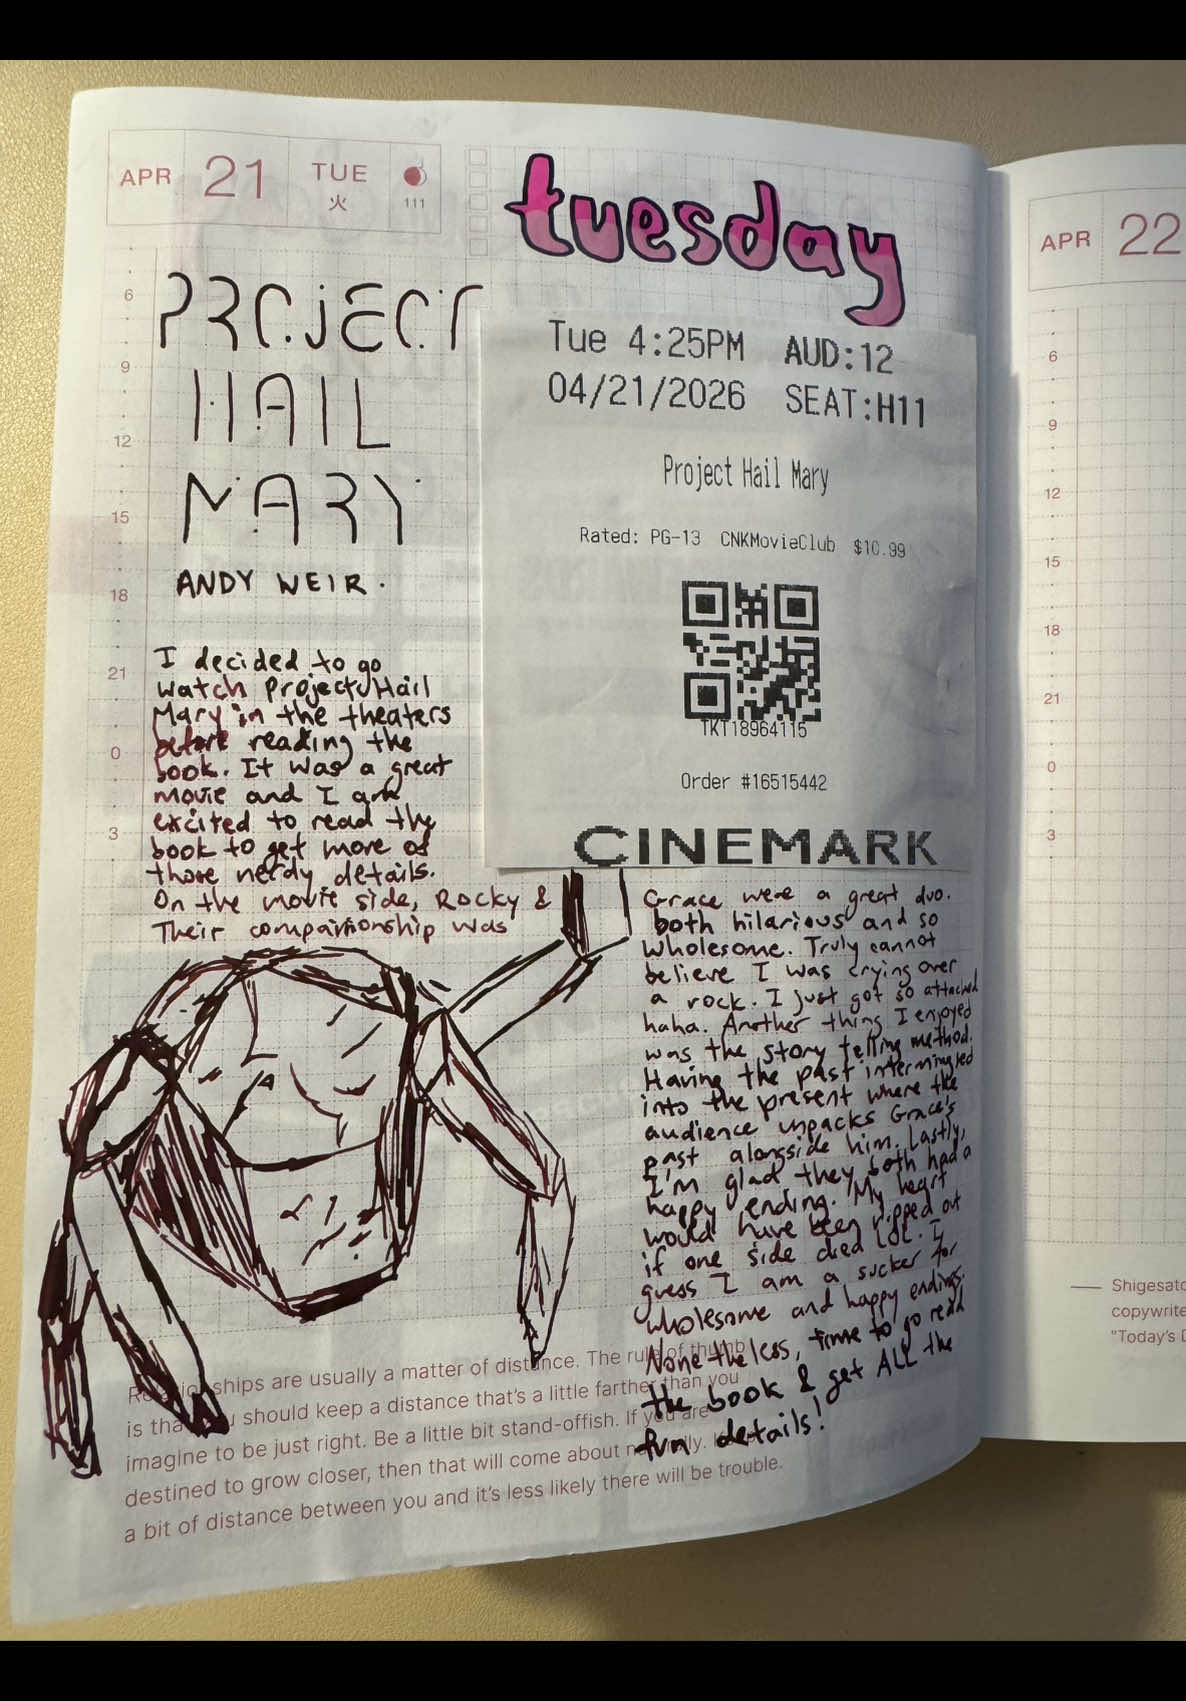 APR 21 TUE
火 111
tuesday
6
9
12
15
18
21
0
3
PROJECT
HAIL
MARY
ANDY WEIR.
Tue 4:25PM AUD:12
04/21/2026 SEAT:H11
Project Hail Mary
Rated: PG-13 CNKMovieClub $10.99
TKT18964115
Order #16515442
CINEMARK
I decided to go
watch Project Hail
Mary in the theaters
before reading the
book. It was a great
movie and I am
excited to read the
book to get more of
those nerdy details.
On the movie side, Rocky &
Their companionship was
Grace were a great duo.
both hilarious and so
wholesome. Truly cannot
believe I was crying over
a rock. I just got so attached
haha. Another thing I enjoyed
was the story telling method.
Having the past intermingled
into the present where the
audience unpacks Grace's
past alongside him. Lastly,
I'm glad they both had a
happy ending. My heart
would have been ripped out
if one side died LOL. I
guess I am a sucker for
wholesome and happy endings.
None the less, time to go read
the book & get ALL the
fun details!
Relationships are usually a matter of distance. The rule of thumb
is that you should keep a distance that's a little farther than you
imagine to be just right. Be a little bit stand-offish. If you are
destined to grow closer, then that will come about naturally.
a bit of distance between you and it's less likely there will be trouble.
APR 22
6
9
12
15
18
21
0
3
Shigesato
copywrite
"Today's D